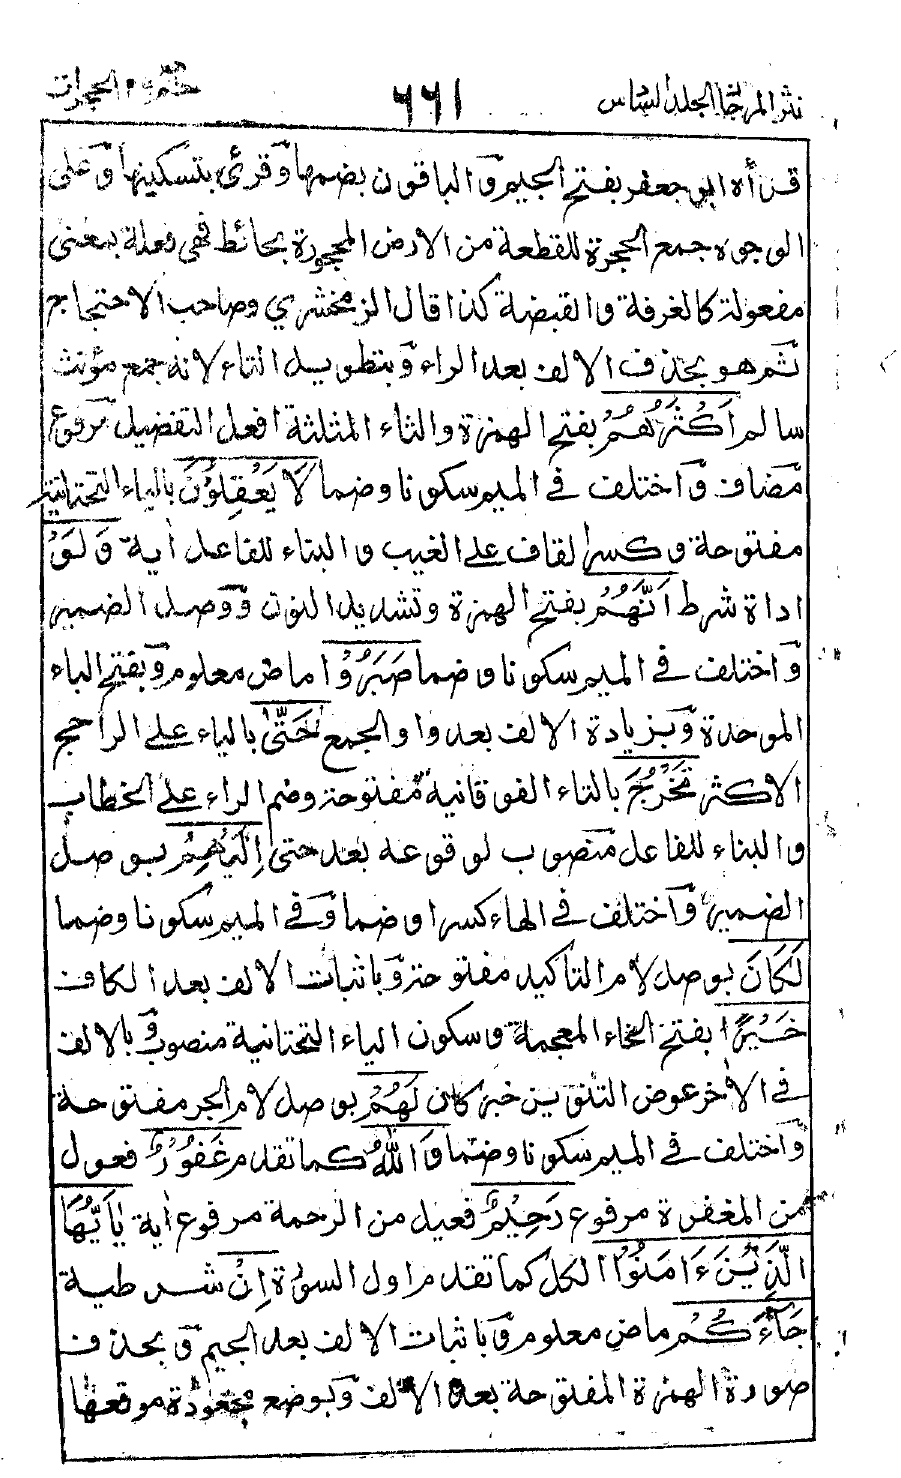 نثر المرجان الجلد السادس ٦٦١ الحجرات
قرأه ابو جعفر بفتح الجيم وّالباقون بضمها وّقرئ بتسكينها وّعلى
الوجوه جمع الحجرة للقطعة من الارض المحجورة بحائط فهي فعلة بمعنى
مفعولة كالغرفة والقبضة كذا قال الزمخشري وصاحب الاحتجاج
ثم هو بحذف الالف بعد الراء وّبتطويل التاء لانه جمع مؤنث
سالم اَكْثَرُهُمْ بفتح الهمزة والثاء المثلثة افعل التفضيل مرفوع
مضاف وّاختلف في الميم سكونا وضما لَا يَعْقِلُوْنَ بالياء التحتانية
مفتوحة وكسر القاف على الغيب والبناء للفاعل اٰية وَلَوْ
اداة شرط اَنَّهُمْ بفتح الهمزة وتشديد النون وّوصل الضمير
وّاختلف في الميم سكونا وضما صَبَرُوْا ماض معلوم وّبفتح الباء
الموحدة وّبزيادة الالف بعد واو الجمع حَتّٰى بالياء على الراجح
الاكثر تَخْرُجَ بالتاء الفوقانية مفتوحة وضم الراء على الخطاب
والبناء للفاعل منصوب لوقوعه بعد حتى اِلَيْهِمْ بوصل
الضمير وّاختلف في الهاء كسرا وضما وّفي الميم سكونا وضما
لَكَانَ بوصل لام التاكيد مفتوحة وّباثبات الالف بعد الكاف
خَيْرًا بفتح الخاء المعجمة وسكون الياء التحتانية منصوب وّبالالف
في الاٰخر عوض التنوين خبر كان لَهُمْ بوصل لام الجر مفتوحة
وّاختلف في الميم سكونا وضما وَاللّٰهُ كما تقدم غَفُوْرٌ فعول
من المغفرة مرفوع رَحِيْمٌ فعيل من الرحمة مرفوع اٰية يٰاَيُّهَا
الَّذِيْنَ ءَامَنُوْا الكل كما تقدم اول السورة اِنْ شرطية
جَآءَكُمْ ماض معلوم وّباثبات الالف بعد الجيم وّبحذف
صورة الهمزة المفتوحة بعد الالف وّبوضع مجعودة موقعها